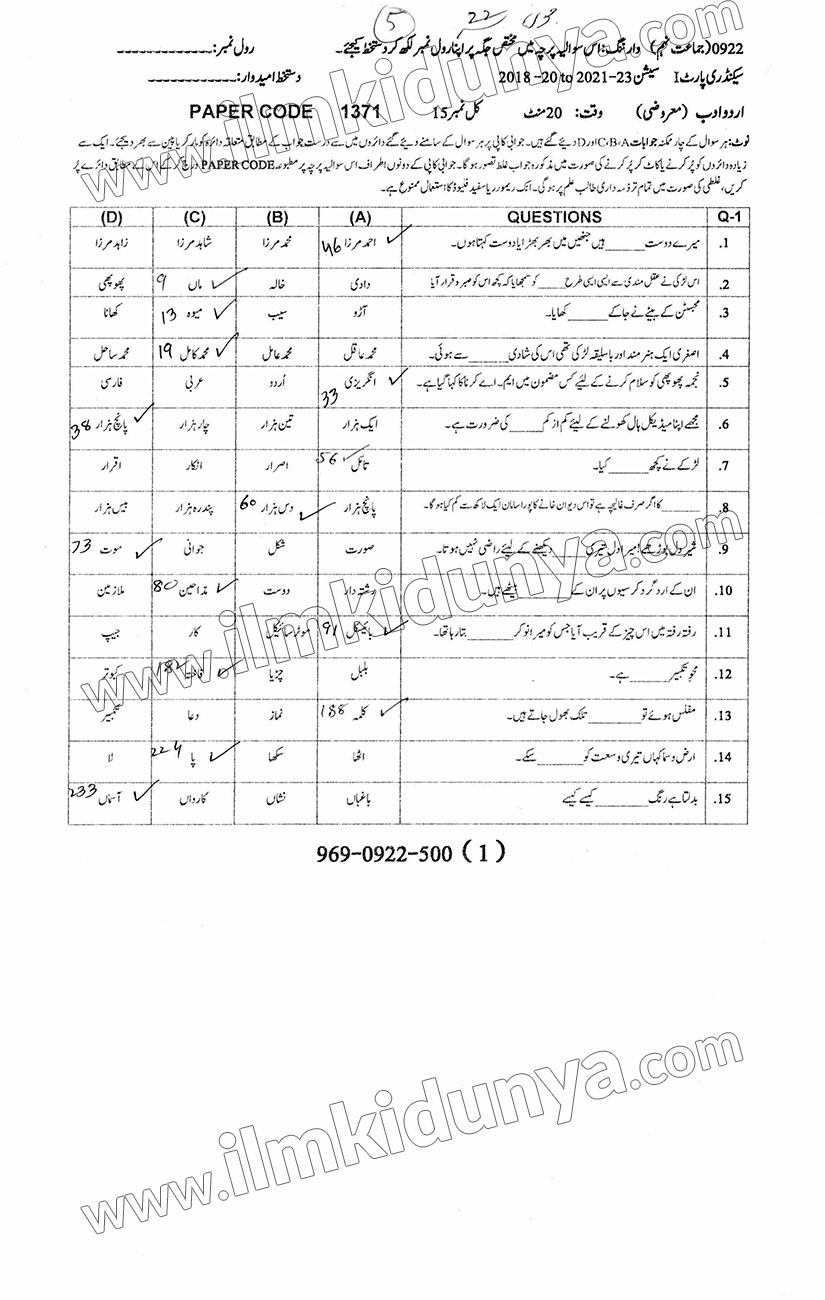 5 22
0922 (جماعت نہم) وارننگ: اس سوالیہ پرچہ میں مختص جگہ پر اپنا رول نمبر لکھ کر دستخط کیجئے۔ رول نمبر: ------------
سیکنڈری پارٹ I سیشن 2018 -20 to 2021 -23 دستخط امیدوار: ------------
اردو ادب (معروضی) وقت: 20 منٹ کل نمبر 15 PAPER CODE 1371
نوٹ: ہر سوال کے چار ممکنہ جوابات C،B،A اور D دیئے گئے ہیں۔ جوابی کاپی پر ہر سوال کے سامنے دیئے گئے دائروں میں سے درست جواب کے مطابق متعلقہ دائرہ کو مارکر یا پین سے بھر دیجئے۔ ایک سے
زیادہ دائروں کو پُر کرنے یا کاٹ کر پُر کرنے کی صورت میں مذکورہ جواب غلط تصور ہوگا۔ جوابی کاپی کے دونوں اطراف اس سوالیہ پرچہ پر مطبوعہ PAPER CODE درج کر کے اس کے مطابق دائرے پُر
کریں، غلطی کی صورت میں تمام تر ذمہ داری طالب علم پر ہوگی۔ انک ریمور یا سفید فلیوڈ کا استعمال ممنوع ہے۔
Q-1 QUESTIONS (A) (B) (C) (D)
1. میرے دوست ______ ہیں جنھیں میں بھر بھڑایا دوست کہتا ہوں۔ احمد مرزا 46 ✓ محمد مرزا شاہد مرزا زاہد مرزا
2. اس لڑکی نے عقل مندی سے ایسی ایسی طرح ______ کو سمجھایا کہ کچھ اس کو صبر و قرار آیا دادی خالہ ماں 9 ✓ پھوپھی
3. مجسٹن کے بیٹے نے جا کے ______ کھایا۔ آڑو سیب میوہ 13 ✓ کھانا
4. اصغری ایک ہنر مند اور با سلیقہ لڑکی تھی اس کی شادی ______ سے ہوئی۔ محمد عاقل محمد عامل محمد کامل 19 ✓ محمد ساحل
5. نجمہ پھوپھی کو سلام کرنے کے لیئے کس مضمون میں ایم۔ اے کرنا کہا گیا ہے۔ انگریزی 33 ✓ اُردو عربی فارسی
6. مجھے اپنا میڈیکل ہال کھولنے کے لیئے کم از کم ______ کی ضرورت ہے۔ ایک ہزار تین ہزار چار ہزار پانچ ہزار 38 ✓
7. لڑکے نے کچھ ______ کیا۔ تامّل 56 ✓ اصرار انکار اقرار
8. ______ کا اگر صرف غالیچہ ہے تو اس دیوان خانے کا پورا سامان ایک لاکھ سے کم کیا ہوگا۔ پانچ ہزار دس ہزار 60 ✓ پندرہ ہزار بیس ہزار
9. شیر دل بوڑھے! میرا دل تیری ______ دیکھنے کے لیئے راضی نہیں ہوتا۔ صورت شکل جوانی موت 73 ✓
10. ان کے ارد گرد کرسیوں پر ان کے ______ بیٹھے ہیں۔ رشتہ دار دوست مداحین 80 ✓ ملازمین
11. رفتہ رفتہ میں اس چیز کے قریب آیا جس کو میرا نوکر ______ بتا رہا تھا۔ بائیسکل 91 ✓ موٹر سائیکل کار جیپ
12. محوِ تکبیر ______ ہے۔ بلبل چڑیا فاختہ 182 ✓ کبوتر
13. مفلس ہوئے تو ______ تلک بھول جاتے ہیں۔ کلمہ 188 ✓ نماز دعا تکبیر
14. ارض و سما کہاں تیری وسعت کو ______ سکے۔ اٹھا سکھا پا 224 ✓ لا
15. بدلتا ہے رنگ ______ کیسے کیسے باغباں نشاں کارواں آسماں 233 ✓
969-0922-500 (1)
www.ilmkidunya.com
www.ilmkidunya.com
www.ilmkidunya.com
www.ilmkidunya.com